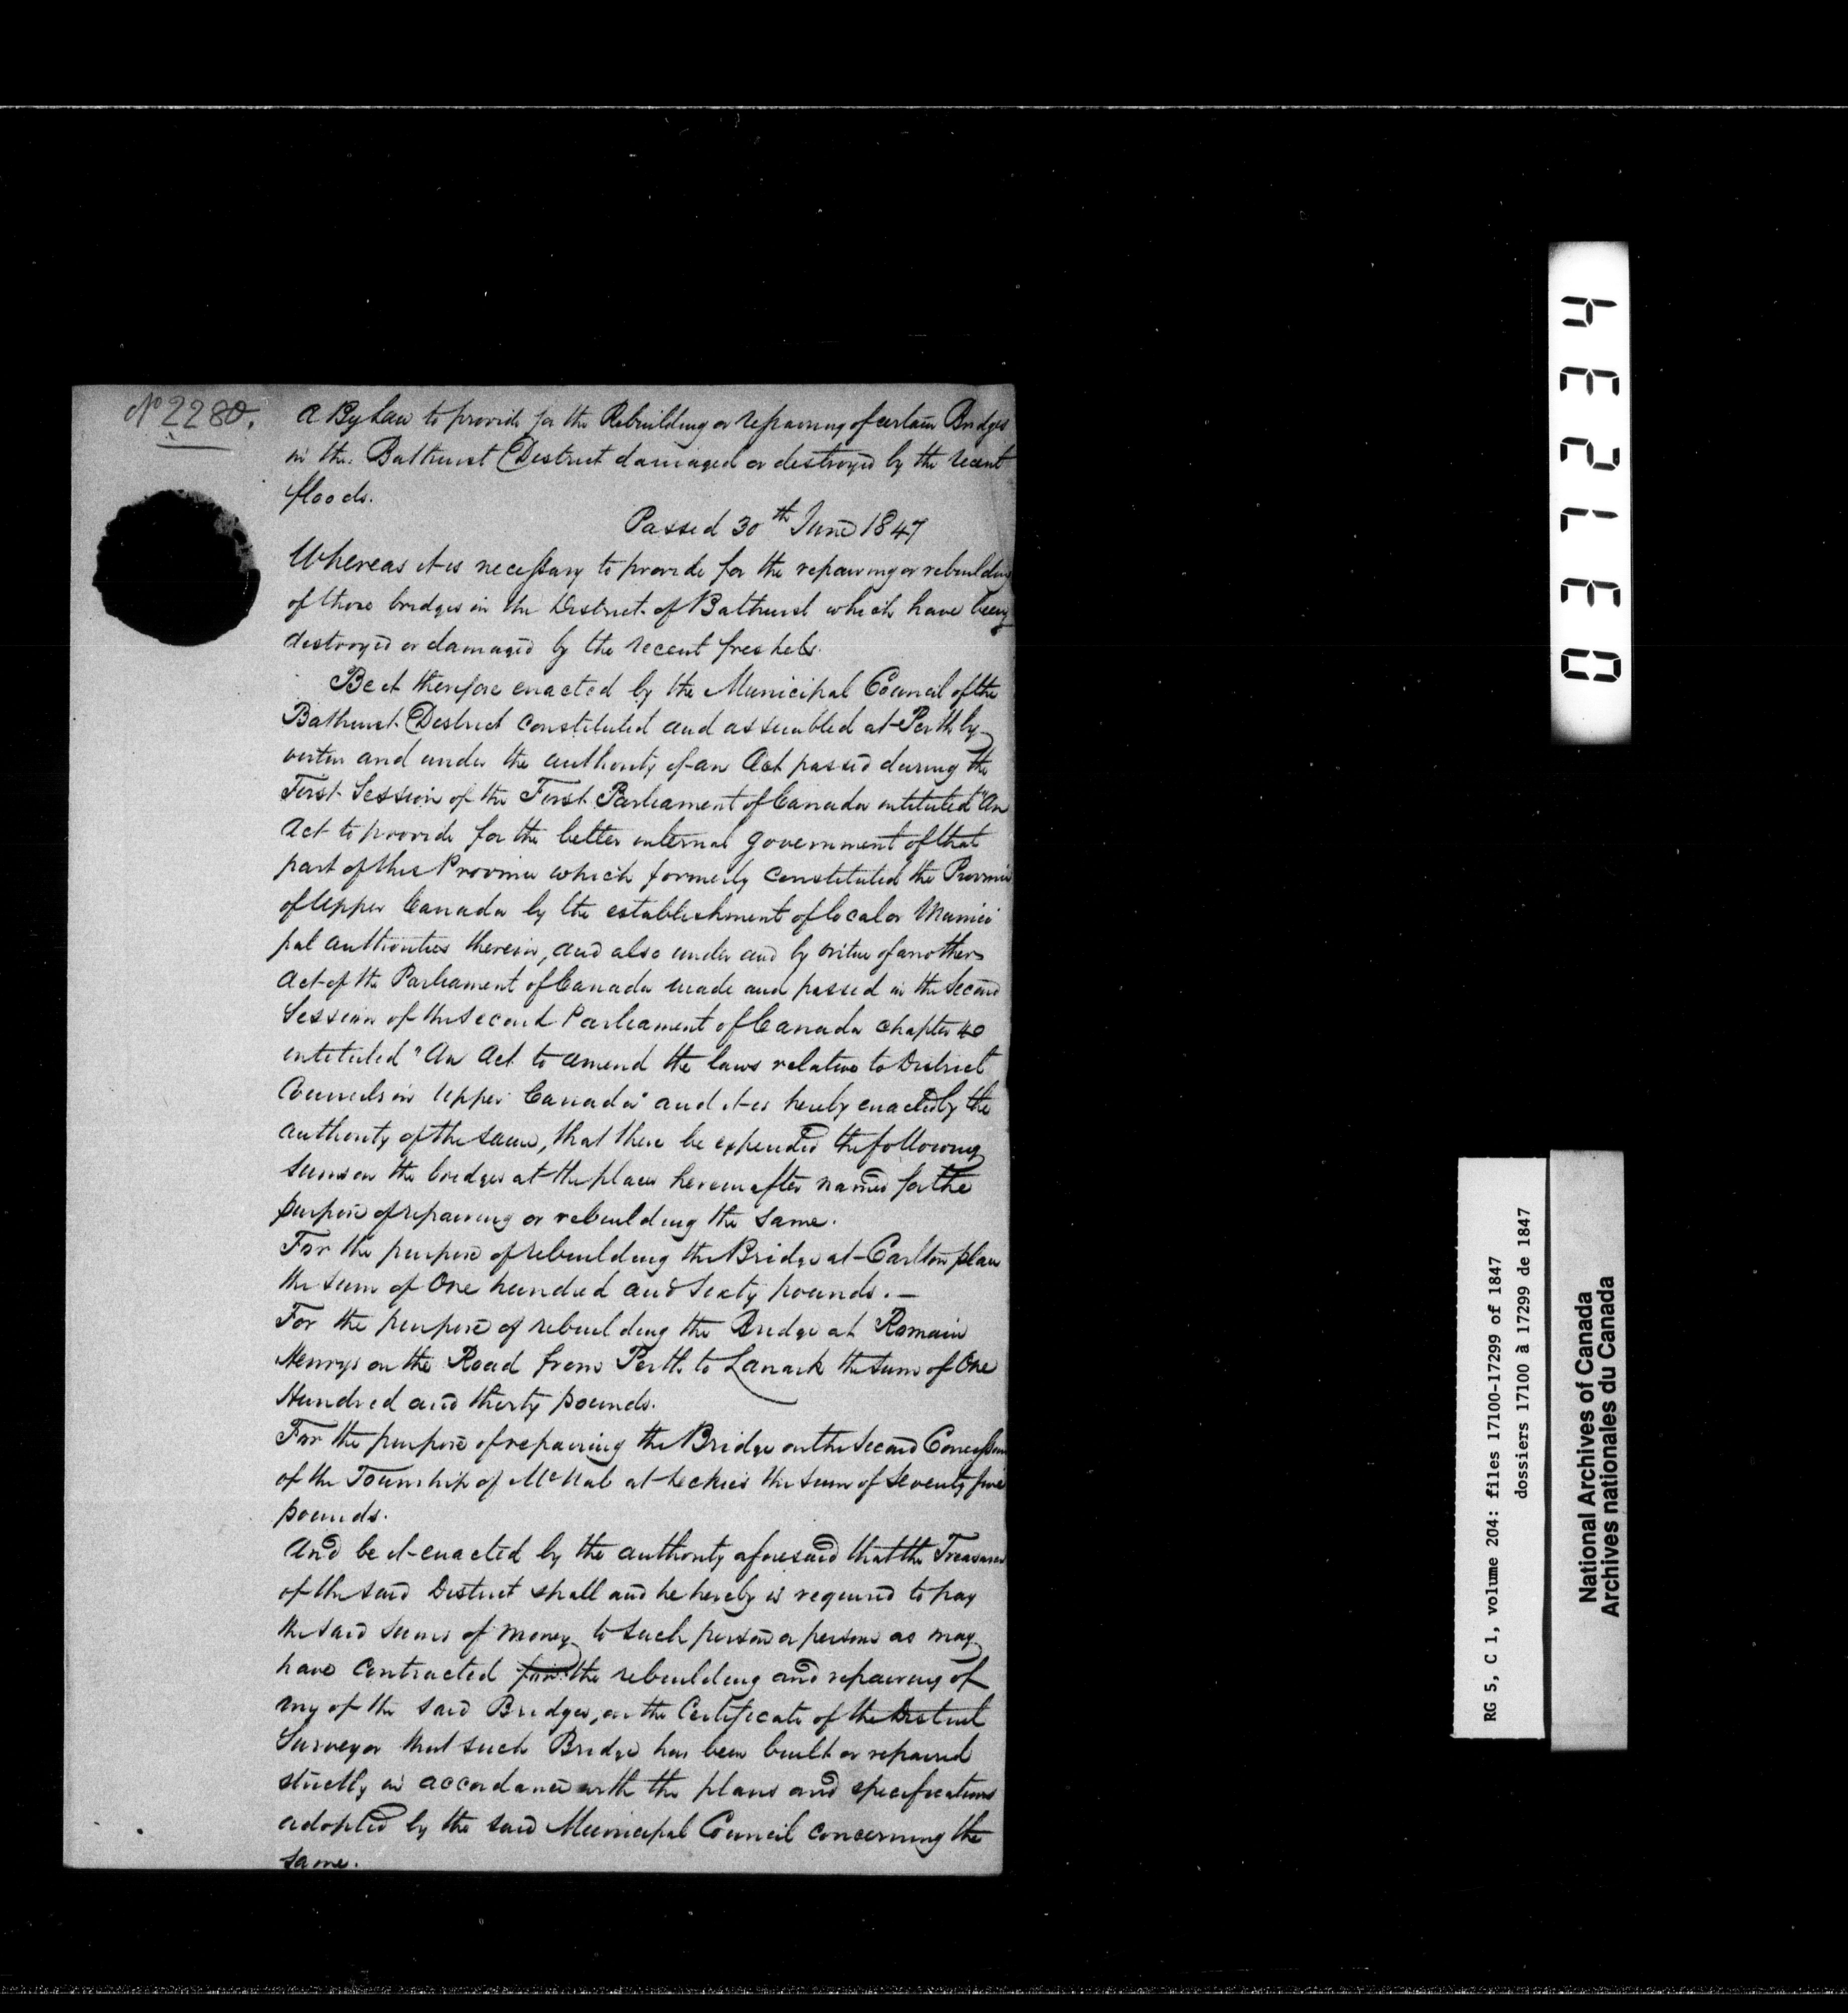 No 2280.
A By Law to provide for the Rebuilding or repairing of certain Bridges
in the Bathurst District damaged or destroyed by the recent
floods.
Passed 30th June 1847
Whereas it is necessary to provide for the repairing or rebuilding
of those bridges in the District of Bathurst which have been
destroyed or damaged by the recent freshets.
Be it therefore enacted by the Municipal Council of the
Bathurst District constituted and assembled at Perth by
virtue and under the authority of an Act passed during the
First Session of the First Parliament of Canada intituled "An
Act to provide for the better internal government of that
part of this Province which formerly constituted the Province
of Upper Canada by the establishment of local or Munici
pal authorities therein, and also under and by virtue of another
Act of the Parliament of Canada made and passed in the Second
Session of the Second Parliament of Canada chapter 40
intituled "An Act to amend the laws relative to District
Councils in Upper Canada" and it is hereby enacted by the
authority of the same, that there be expended the following
sums on the bridges at the places hereinafter named for the
purpose of repairing or rebuilding the same.
For the purpose of rebuilding the Bridge at Carlton place
the sum of One hundred and Sixty pounds. —
For the purpose of rebuilding the Bridge at Romain
Henrys on the Road from Perth to Lanark the sum of One
Hundred and thirty pounds.
For the purpose of repairing the Bridge on the Second Concession
of the Township of McNab at Leckies the sum of Seventy five
pounds.
And be it enacted by the authority aforesaid that the Treasurer
of the said District shall and he hereby is required to pay
the said sums of money to such person or persons as may
have contracted for the rebuilding and repairing of
any of the said Bridges, on the Certificate of the District
Surveyor that such Bridge has been built or repaired
strictly in accordance with the plans and specifications
adopted by the said Municipal Council concerning the
same.
031234
RG 5, C 1, volume 204: files 17100-17299 of 1847
dossiers 17100 à 17299 de 1847
National Archives of Canada
Archives nationales du Canada